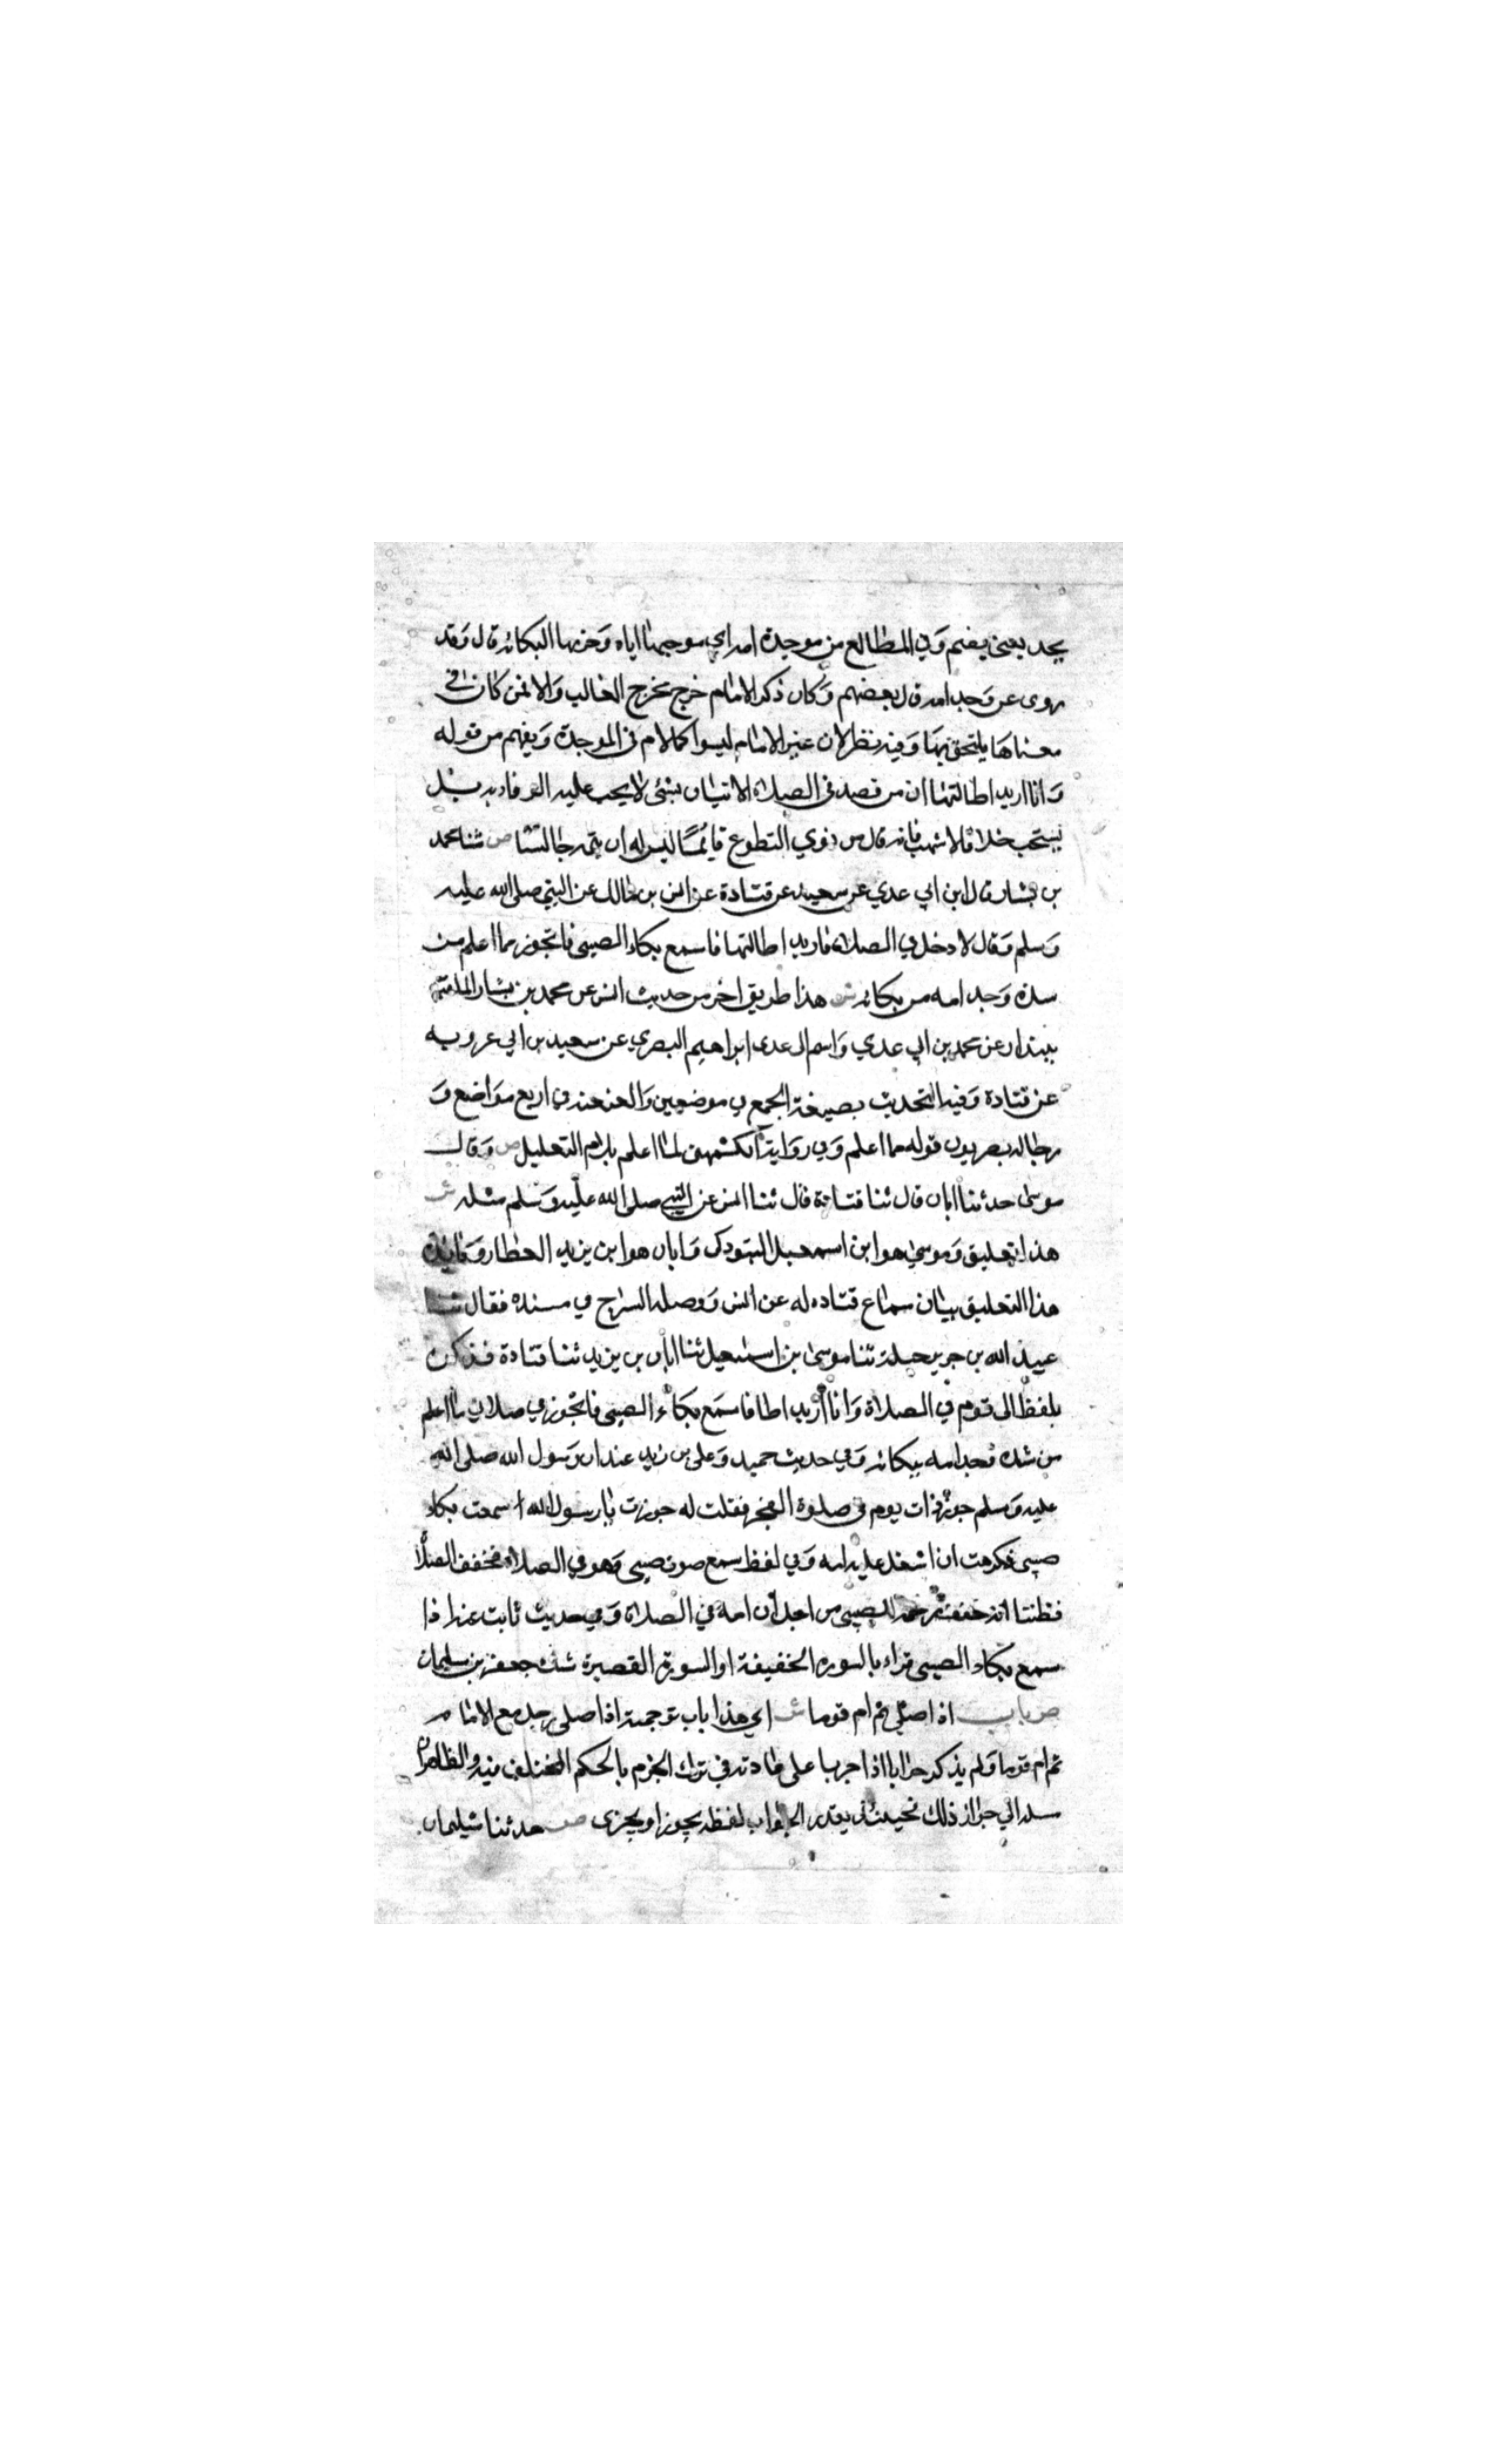 يجد يعنى يفهم وفي المطالع من موجدة امه اي موجبها اياه وحزنها لبكائه قال وقد
روى عن وجد امه قال بعضهم وكان ذكر الامام خرج مخرج الغالب والا فمن كان في
معناها يلتحق بها وفيه نظر لان غير الامام ليسوا كالام في الموجدة ويفهم من قوله
وانا اريد اطالتها ان من قصد في الصلاة الاتيان بشئ لا يجب عليه الوفا به بل
يستحب خلافا لاشهب فانه قال من نوي التطوع قائما ليس له ان يتمه جالسا ص ثنا محمد
بن بشار قال ابن ابي عدي عن سعيد عن قتادة عن انس بن مالك عن النبي صلى الله عليه
وسلم وقال لادخل في الصلاة فاريد اطالتها فاسمع بكاء الصبى فاتجوز مما اعلم من
شدة وجد امه من بكائه ش هذا طريق اخر من حديث انس عن محمد بن بشار الملقب
ببندار عن محمد بن ابي عدي واسم ابى عدى ابراهيم البصري عن سعيد بن ابي عروبه
عن قتادة وفيه التحديث بصيغة الجمع في موضعين والعنعنه في اربع مواضع و
رجاله بصريون قوله مما اعلم وفي رواية الكشمهنى لما اعلم بلام التعليل ص وقال
موسى حدثنا ابان قال ثنا قتادة قال ثنا انس عن النبي صلى الله عليه وسلم مثله ش
هذا تعليق وموسى هو ابن اسمعيل التبوذكى وابان هو ابن يزيد العطار وفايدة
هذا التعليق بيان سماع قتاده له عن انس ووصله السراج في مسنده فقال ثنا
عبيد الله بن جرير جبلة ثنا موسى بن اسمعيل ثنا ابان بن يزيد ثنا قتادة فذكره
بلفظ الى قوم في الصلاة وانا اريد اطا فاسمع بكاء الصبى فاتجوز في صلاتي ما اعلم
من شده وجد امه ببكائه وفي حديث حميد وعلى بن زيد عند ان رسول الله صلى الله
عليه وسلم جوز ذات يوم في صلوة الفجر فقلت له جوزت يا رسول الله اسمعت بكاء
صبى فكرهت ان اشغل عليه امه وفي لفظ سمع صوت صبى وهو في الصلاة فخفف الصلا
فظننا انه خفف رحمة للصبى من اجل ان امه في الصلاة وفي حديث ثابت عنه اذا
سمع بكاء الصبى قراء بالسوره الخفيفة او السورة القصيرة شك جعفر بن سليمان
ص باب اذا صلى ثم ام قوما ش اي هذا باب ترجمته اذا صلى رجل مع الامام
ثم ام قوما ولم يذكر جوابا اذا جريا على عادته في ترك الجزم بالحكم المختلف فيه والظاهر
سله الي جواز ذلك فحينئذ يقدر الجواب لفظه يجوز او يجزى ص حدثنا سليمان